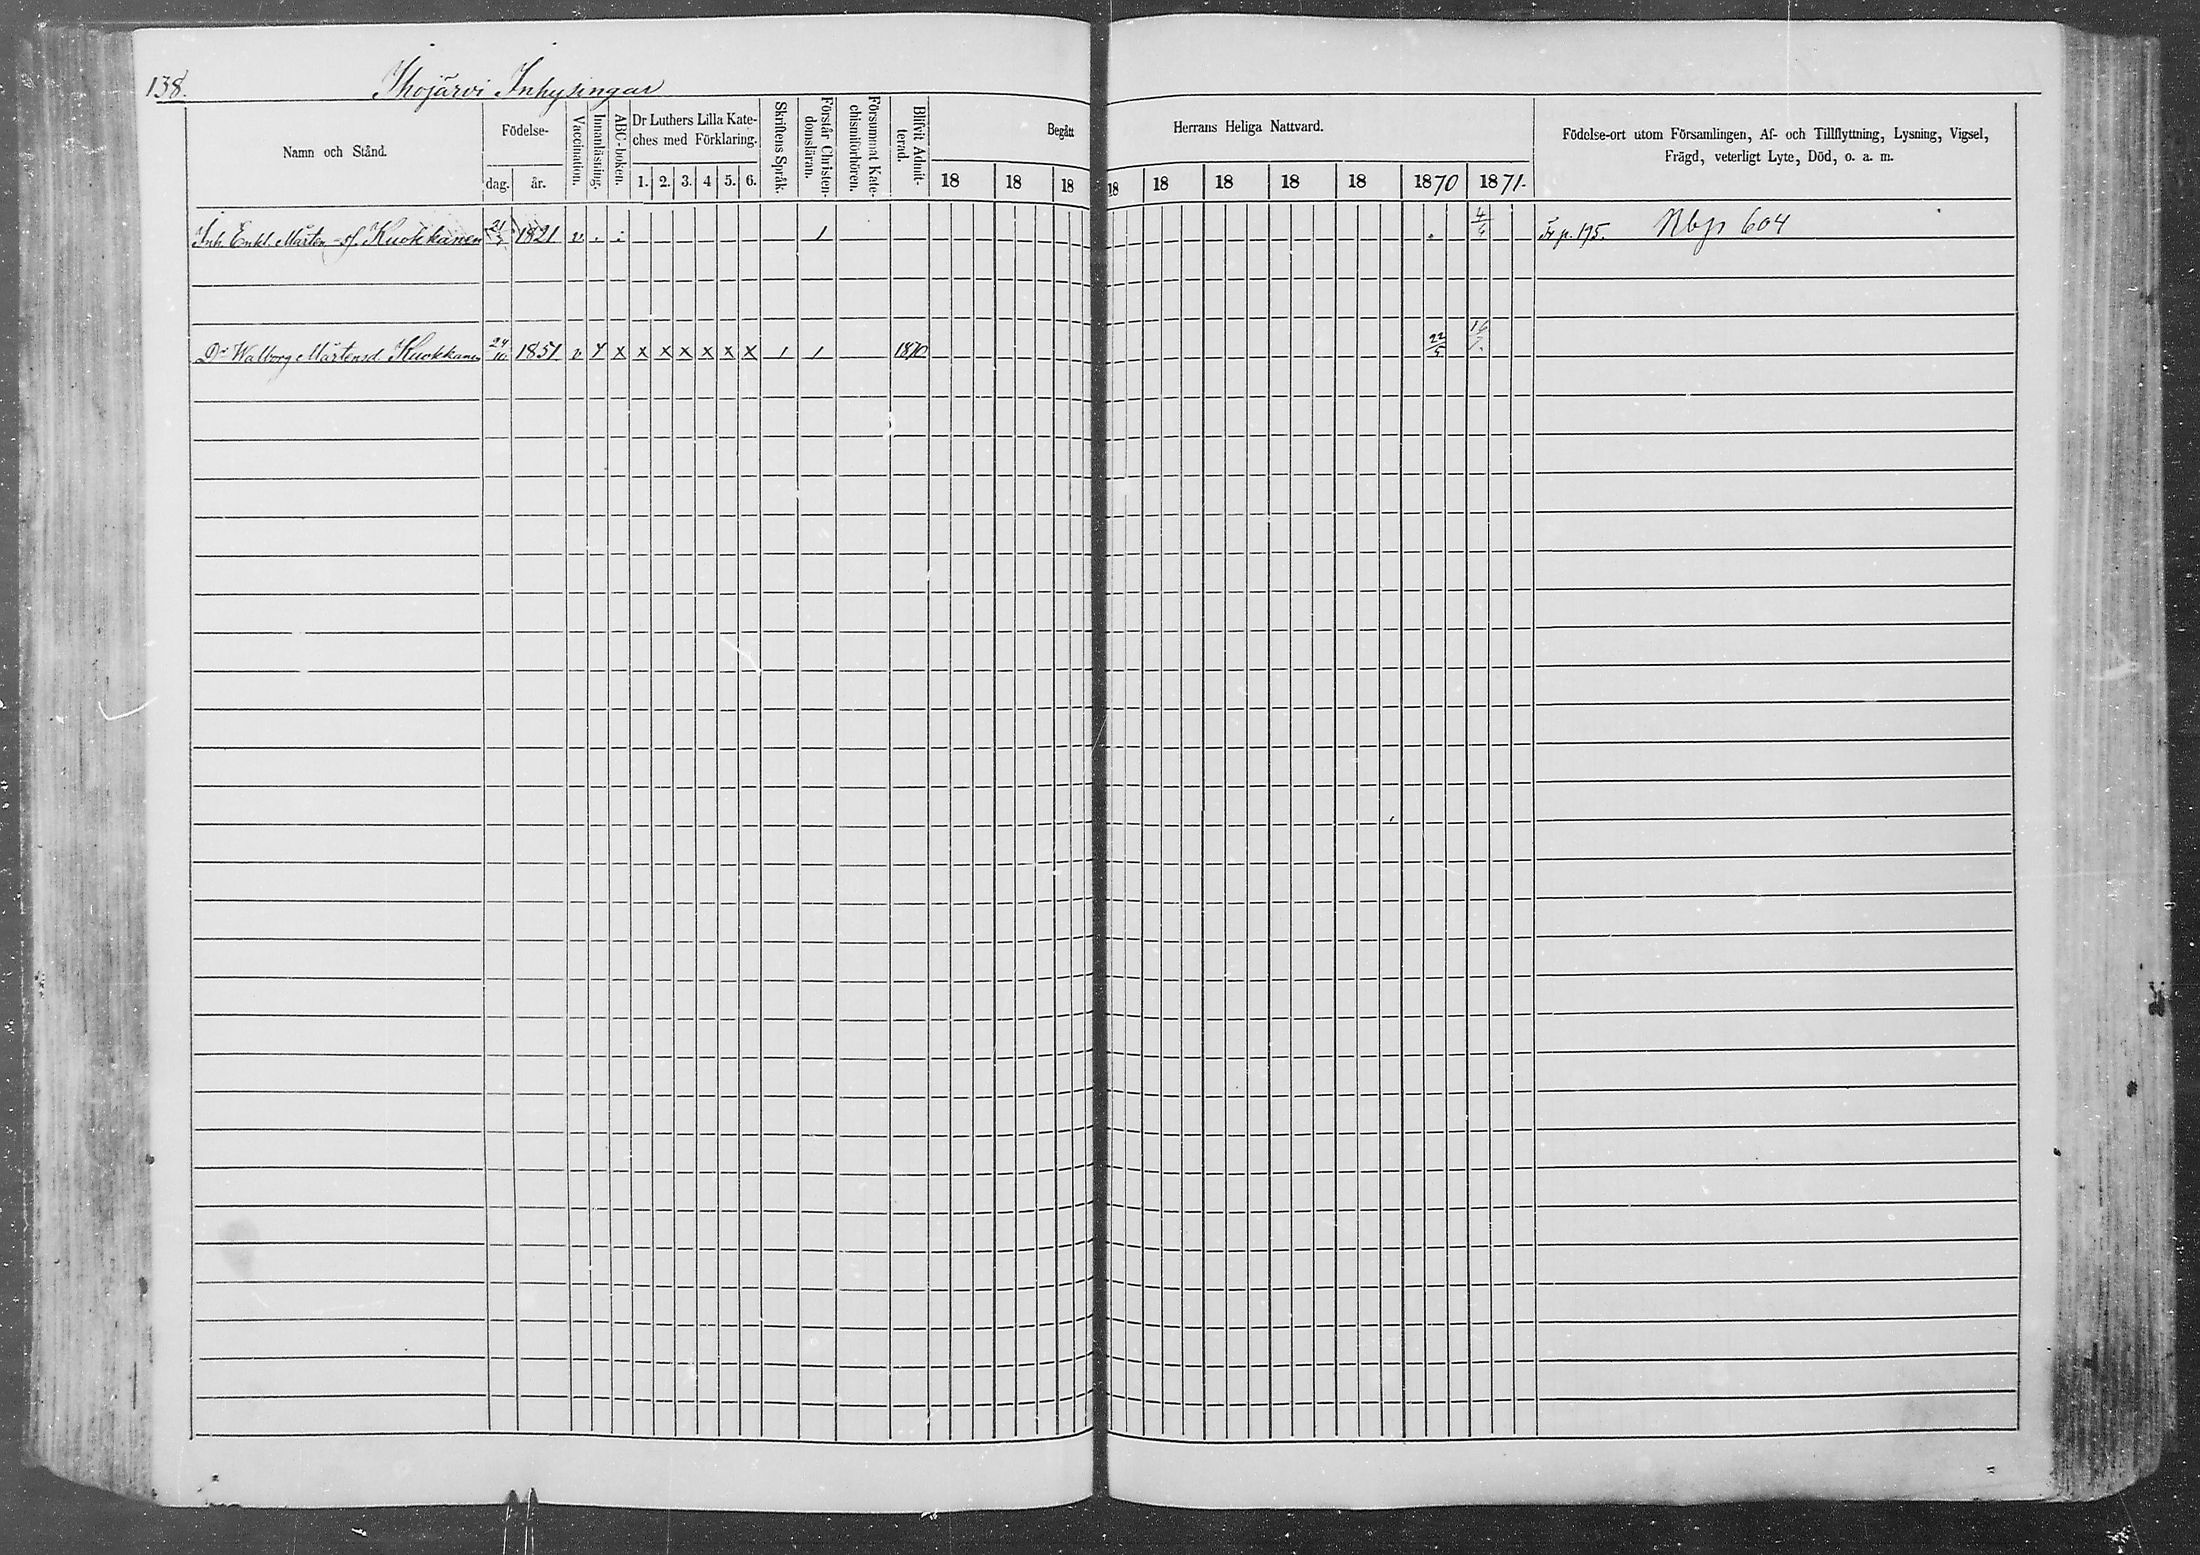 138.
Ihojärvi Inhysingar
Namn och Stånd.
Födelse-
dag.
år.
Vaccination.
Innanläsning.
ABC-boken.
Dr Luthers Lilla Kate-
ches med Förklaring.
1. 2. 3. 4 5. 6.
Skriftens Språk.
Förstår Christen-
domsläran.
Försummat Kate-
chismiförhören.
Blifvit Admit-
terad.
Begått
Herrans Heliga Nattvard.
18 18 18 18 18 18 18 18 1870 1871.
Födelse-ort utom Församlingen, Af- och Tillflyttning, Lysning, Vigsel,
Frägd, veterligt Lyte, Död, o. a. m.
Inh. Enkl. Mårten sf. Kuokkanen 1821 v . : 1 . 4/6 Fr p. 195. Nbp 604
Dr Walborg Mårtensd. Kuokkanen 24/10 1851 v 4 x x x x x x x 1 1 1870 22/5